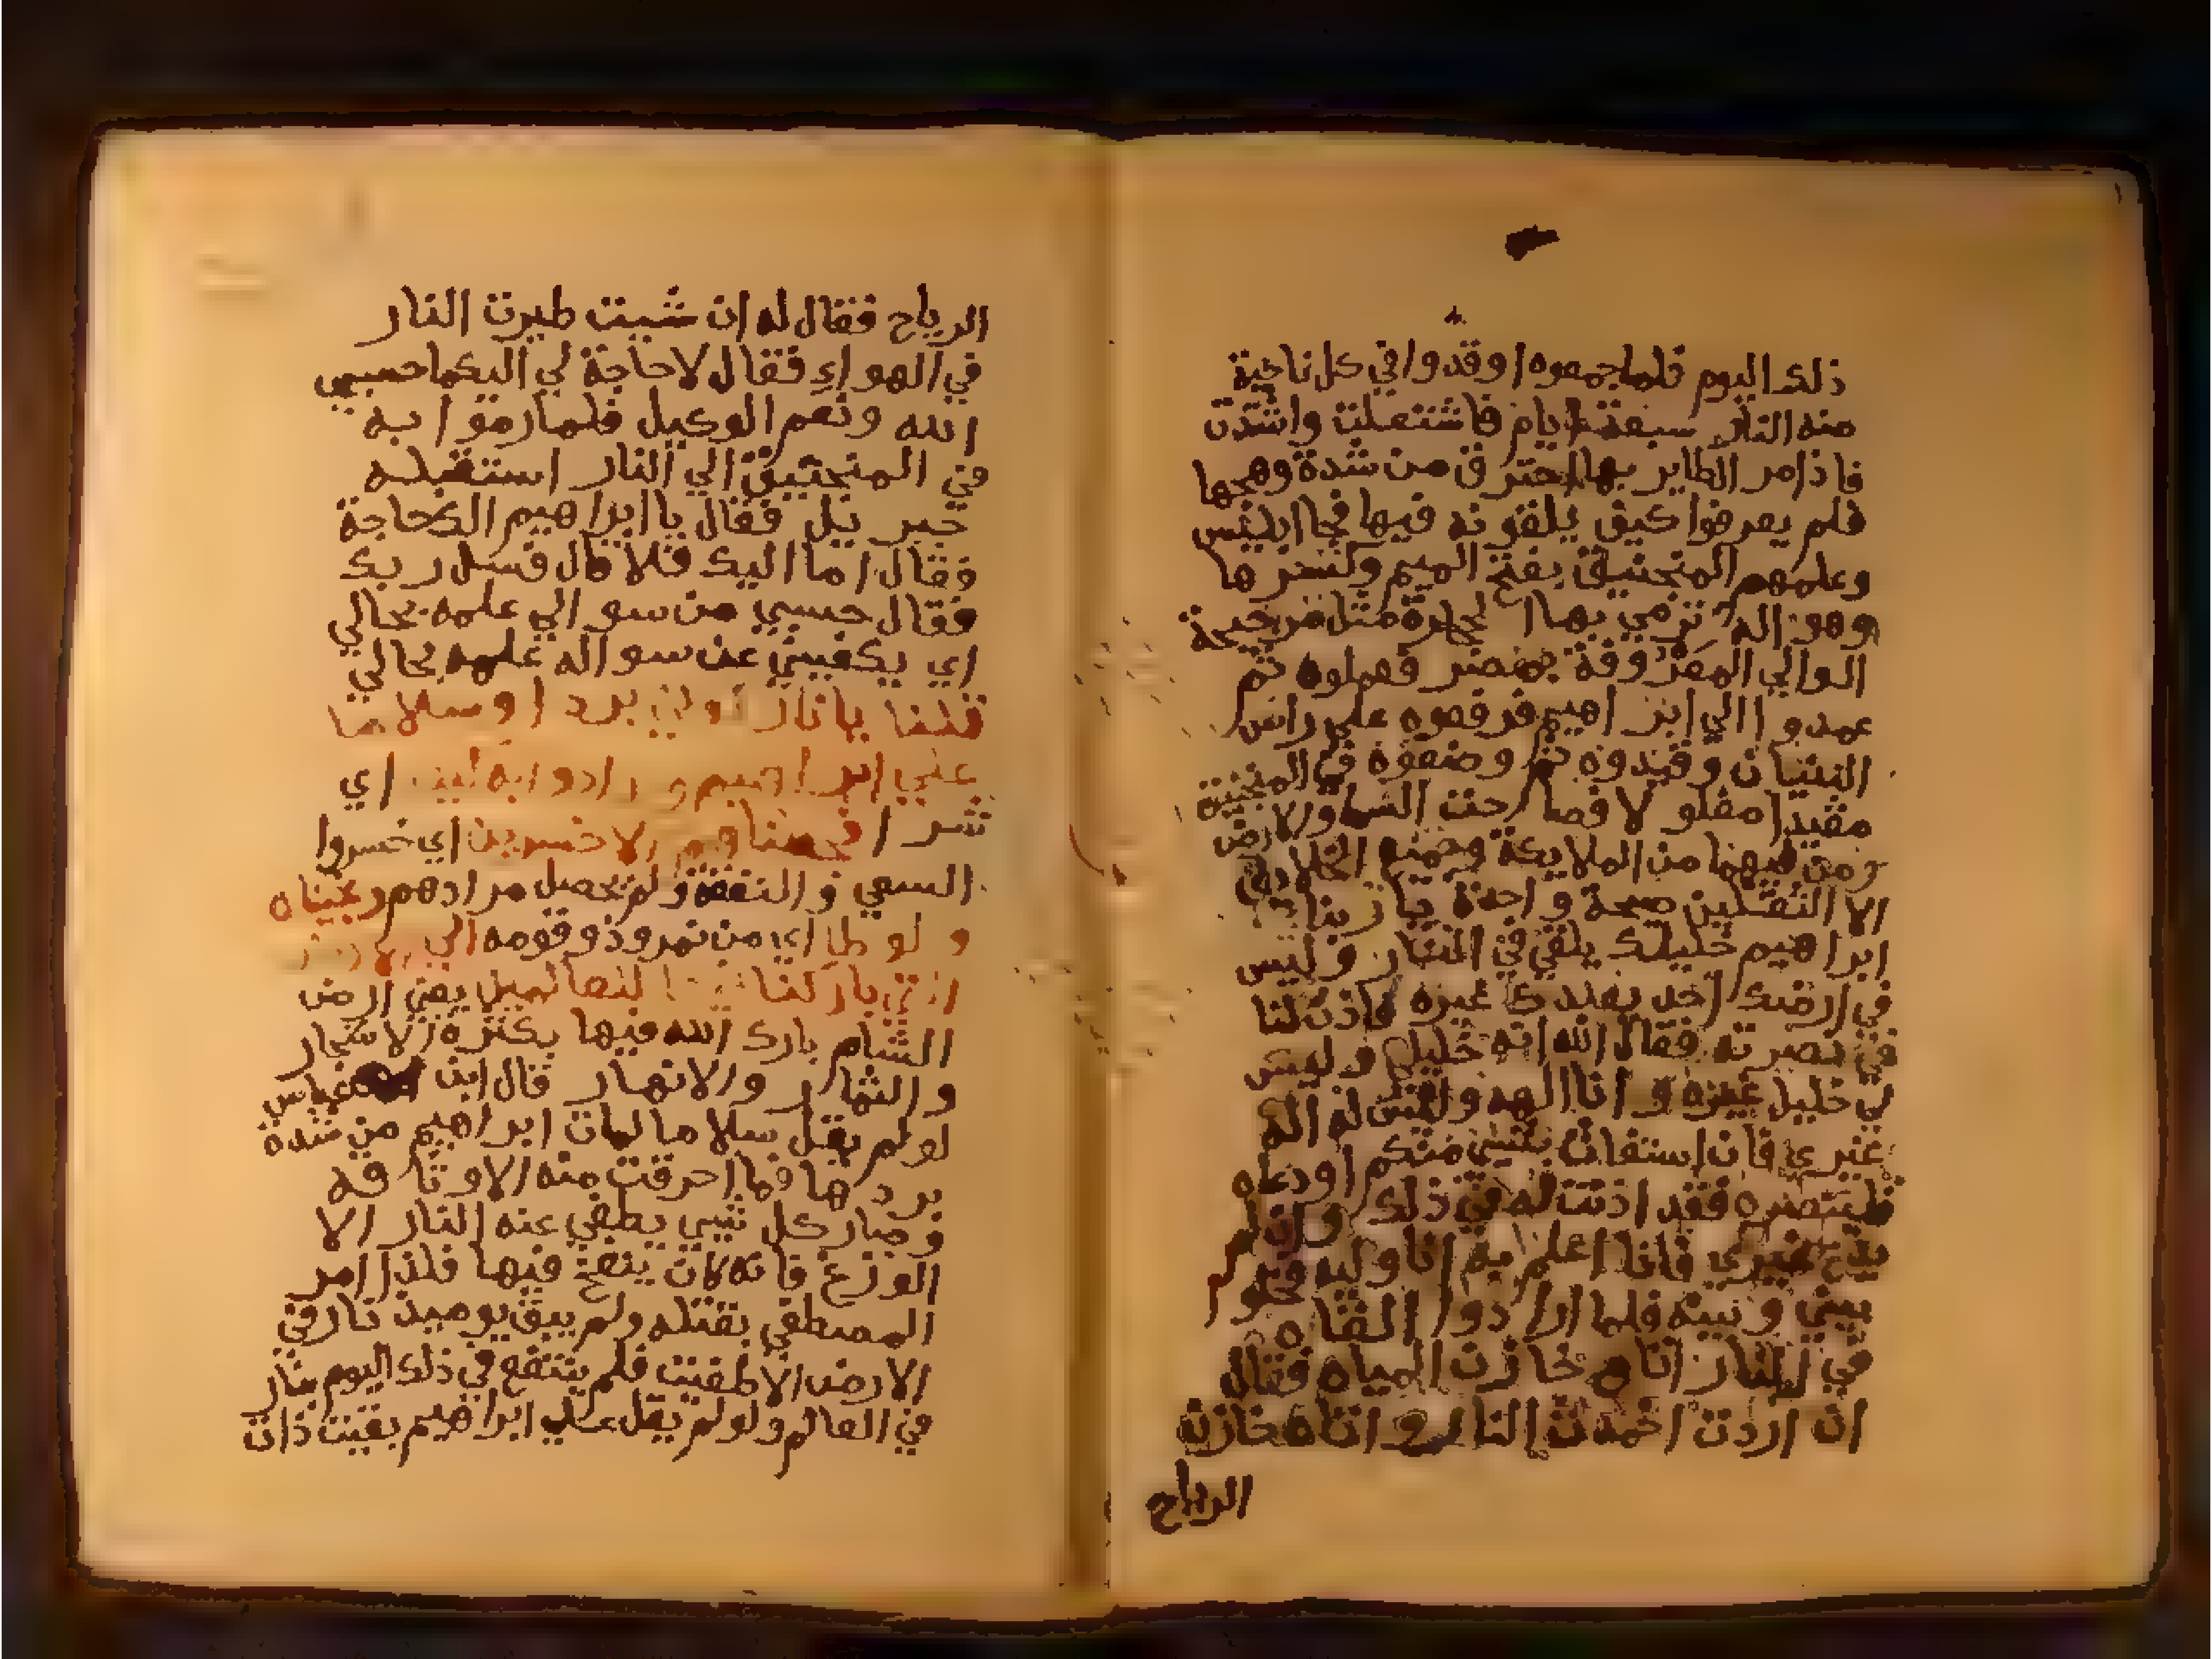 ذلك اليوم فلما جمعوه اوقدوا في كل ناحية
منه النار سبعة ايام فاشتعلت واشتدت
فاذا مر الطاير بها احترق من شدة وهجها
فلم يعرفوا كيف يلقونه فيها فجا ابليس
وعلمهم المنجنيق بفتح الميم وكسرها
وهو اله ترمي بها الحجارة مثل
الوالي المعروفة بمصر فعملوه ثم
عمدوا الي ابراهيم فرفعوه علي راس
البنيان وقيدوه ثم وضعوه في المنجنيق
مقيدا مغلولا فصاحت السما والارض
ومن فيهما من الملايكة وجميع الخلايق
الا الثقلين صيحة واحدة يا ربنا
ابراهيم خليلك يلقي في النار وليس
في ارضك احد يعبدك غيره فاذن لنا
في نصرته فقال الله انه خليلي وليس
لي خليل غيره وانا الهه وليس له اله
غيري فان استغاث بشي منكم او دعاه
فلينصره فقد اذنت له في ذلك وان لم
يدع غيري فانا اعلم به انا وليه فخلوا
بيني وبينه فلما ارادوا القاه
في النار اتاه خازن المياه فقال
ان اردت اخمدت النار واتاه خازن
الرياح
الرياح فقال له ان شيت طيرت النار
في الهواء فقال لا حاجة لي اليكما حسبي
الله ونعم الوكيل فلما رموا به
في المنجنيق الي النار استقبله
جبريل فقال يا ابراهيم الك حاجة
فقال اما اليك فلا قال فسل ربك
فقال حسبي من سوالي علمه بحالي
اي يكفيني عن سواله علمه بحالي
قلنا يا نار كوني بردا وسلاما
علي ابراهيم وارادوا به كيدا اي
شرا فجعلناهم الاخسرين اي خسروا
السعي والنفقة ولم يحصل مرادهم ونجيناه
ولوطا اي من نمروذ وقومه الي الارض
التي باركنا فيها للعالمين يعني ارض
الشام بارك الله فيها بكثرة الاشجار
والثمار والانهار قال ابن عباس
لو لم يقل سلاما لمات ابراهيم من شدة
بردها فما احرقت منه الا وثاقه
وصار كل شيي يطفي عنه النار الا
الوزغ فانه كان ينفخ فيها فلذا امر
المصطفي بقتله ولم يبق يوميذ نار في
الارض الا طفيت فلم ينتفع في ذلك اليوم بنار
في العالم ولو لم يقل علي ابراهيم بقيت ذات